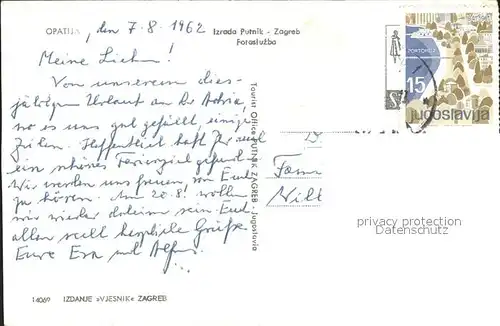 OPATIJA, den 7.8.1962 Izrada Putnik - Zagreb
Fotoslužba
Meine Lieben!
Von unserem dies-
jährigen Urlaub an der Adria,
wo es uns gut gefällt, einige
Zeilen. Hoffentlich habt Ihr auch
ein schönes Ferienziel gefunden
Wir werden uns freuen von Euch
zu hören. Am 20.8. wollen
wir wieder daheim sein. Euch
allen recht herzliche Grüße
Eure Eva und
Tourist Office PUTNIK ZAGREB Jugoslavia
14069 IZDANJE »VJESNIK« ZAGREB
PORTOROŽ
15
jugoslavija
Fam
privacy protection
Datenschutz